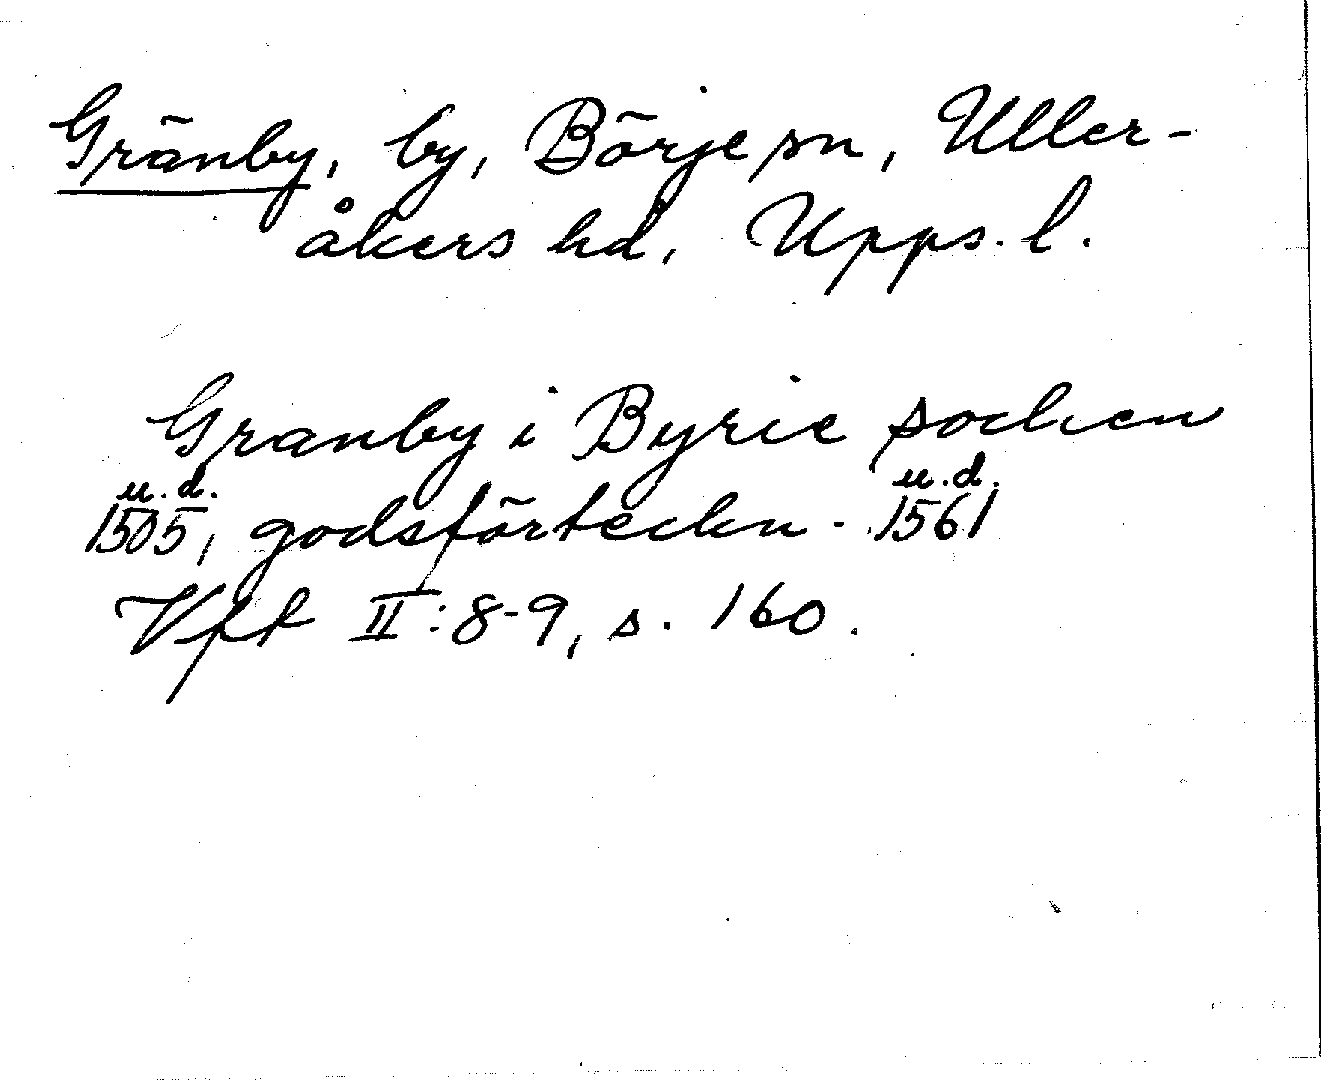 Gränby, by, Börje sn, Uller-
åkers hd, Upps. l.
Granby i Byrie socken
u.d. u.d.
1505, godsförteckn. 1561
Vft II:8-9, s. 160.